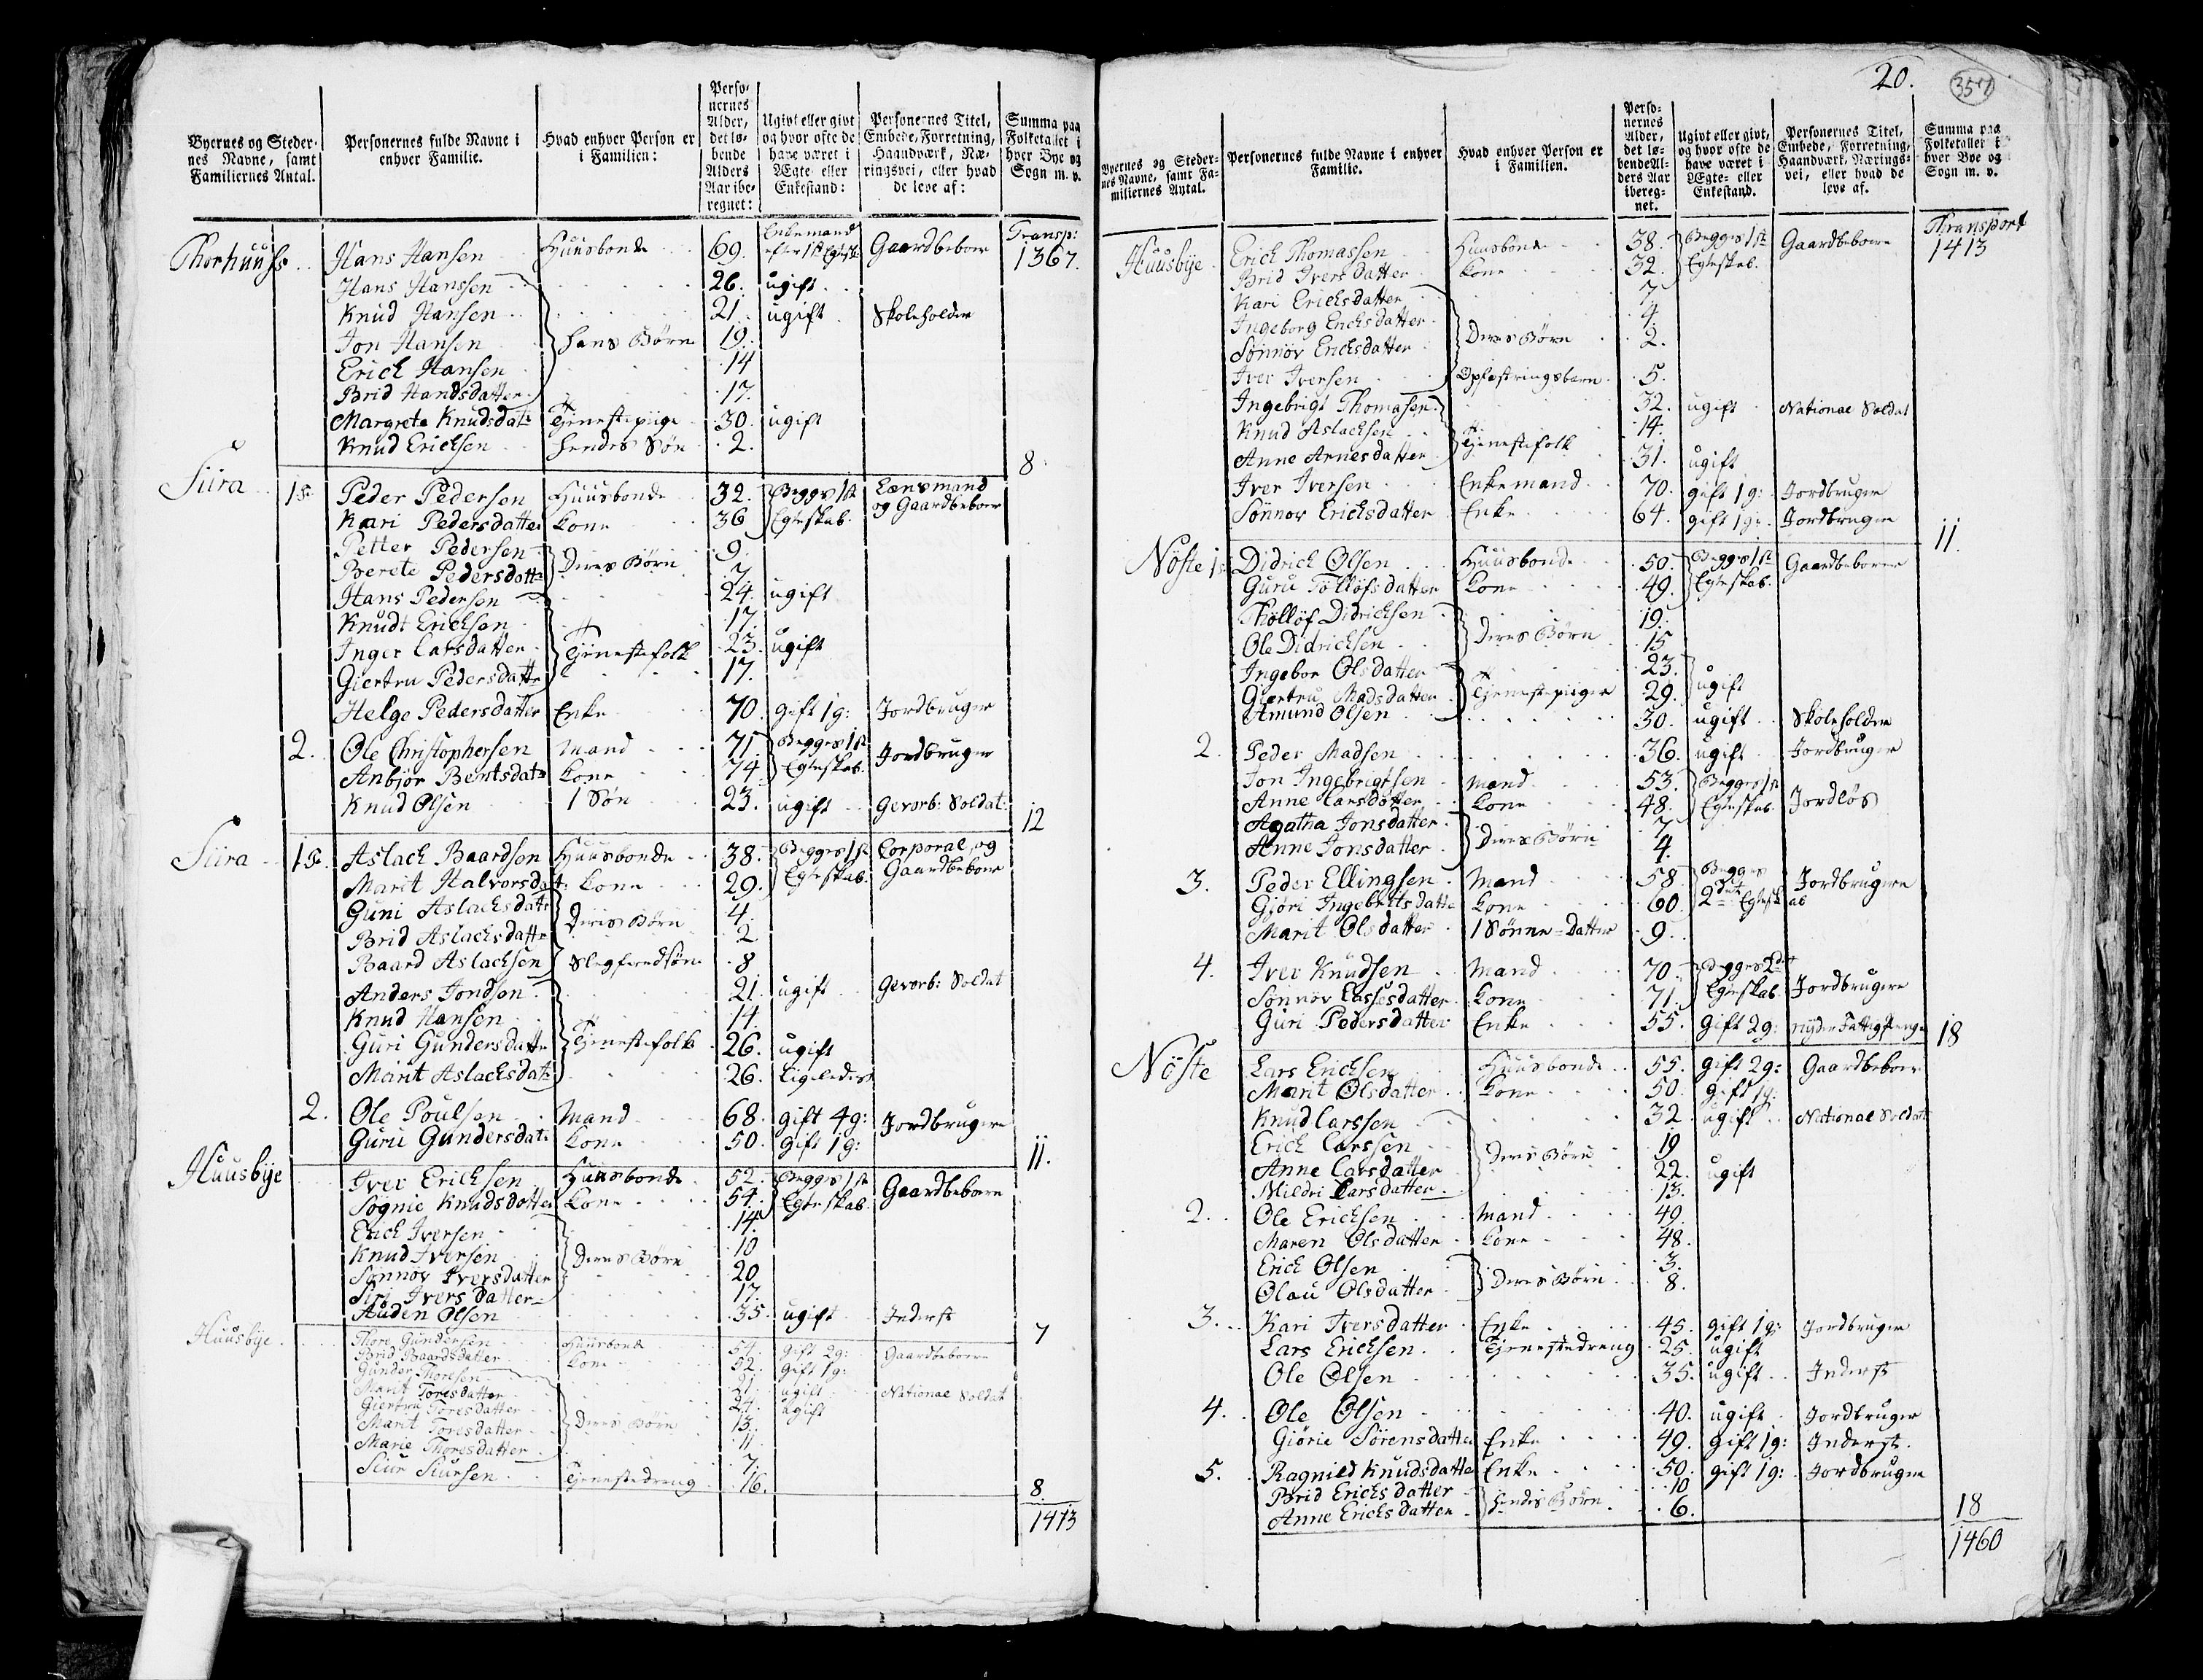 Byernes og Steder-
nes Navne, samt
Familiernes Antal.
Personernes fulde Navne i
enhver Familie.
Hvad enhver Person er
i Familien:
Perso-
nernes
Alder,
det lø-
bende
Alders
Aar ibe-
regnet:
Ugivt eller givt
og hvor ofte de
have været i
Ægte- eller
Enkestand:
Personernes Titel,
Embede, Forretning,
Haandværk, Næ-
ringsvei, eller hvad
de leve af:
Summa paa
Folketallet i
hver Bye og
Sogn m. v.
Transp:
Thorhuuss Hans Hansen Huusbonde 69. Enkemand efter 1ste Egtesk. Gaardbeboer 1367.
Hans Hanssen 26. ugift
Knud Hansen 21. ugift Skoleholder
Jon Hansen hans Børn 19.
Erich Hansen 14
Brid Handsdatter 17.
Margrete Knudsdatr Tjenestepiige 30. ugift
Knud Erichsen hendes Søn 2. 8.
Siira 1s. Peder Pedersen Huusbonde 32. Begges 1ste Lensmand
Kari Pedersdatter Kone 36 Egteskab. og Gaardbeboer
Petter Pedersen 9.
Berete Pedersdattr Deres Børn 7.
Hans Pedersen 24. ugift
Knudt Erichsen 17.
Inger Larsdatter Tjenestefolk 23. ugift
Giertru Pedersdattr 17.
Helge Pedersdatter Enke 70. gift 1 g: Jordbruger
2. Ole Christophersen Mand 71. Begges 1ste Jordbruger
Anbjør Berntsdatr Kone 74. Egteskab.
Knud Olsen 1 Søn 23. ugift Gevorb: Soldat 12
Siira 1s. Aslach Baardsen Huusbonde 38. Begges 1ste Corporal, og
Marit Halvorsdatt: Kone 29. Egteskab. Gaardbeboer
Guni Aslachsdatr 4.
Brid Aslachsdattr Deres Børn 2
Baard Aslachsen Slegfredsøn 8
Anders Jondsen 21. ugift Gevorb: Soldat
Knud Hansen 14.
Guri Gundersdattr Tjenestefolk 26. ugift
Marit Aslachsdatr 26. Ligeledes
2. Ole Poulsen Mand 68. gift 4 g: Jordbrugere
Gurie Gundersdatr Kone 50. gift 1 g: 11.
Huusbije Iver Erichsen Huusbonde 52. Begges 1ste Gaardbeboere
Sognie Knudsdatter Kone 54. Egteskab.
Erich Iversen 14.
Knud Iversen Deres Børn 10
Sønnøv Iversdatter 20
Siri Ivers datter 17.
Auden Olsen 35. ugift Inderst 7
Huusbije Thore Gundersen Huusbonde 54. gift 2 g: Gaardbeboere
Brid Baardsdatter Kone 52. gift 1 g:
Gunder Thoresen 21. ugift National Soldat
Marit Toresdatter 24. ugift
Giertru Toresdatter Deres Børn 13.
Marit Toresdatter 11.
Marie Thoresdatter 7.
Siur Siursen Tjenestedreng 16. 8.
1413
20.
Byernes og Steder-
nes Navne, samt Fa-
miliernes Antal.
Personernes fulde Navne i enhver
Familie.
Hvad enhver Person er
i Familien.
Perso-
nernes
Alder,
det lø-
bende Al-
ders Aar
ibereg-
net.
Ugivt eller givt,
og hvor ofte de
have været i
Ægte- eller
Enkestand.
Personernes Titel,
Embede, Forretning,
Haandværk, Nærings-
vei, eller hvad de
leve af.
Summa paa
Folketallet i
hver Bye og
Sogn m. v.
Transport
Huusbije Erich Thomassen Huusbonde 38. Begges 1ste Gaardbeboere 1413
Brid Ivers datter Kone 32. Egteskab.
Kari Erichsdatter 7
Ingeborg Erichsdatter 4.
Sønnøv Erichsdatter Deres Børn 2.
Iver Iversen Opfostringsbarn 5.
Ingebrigt Thomasen 32. ugift National Soldat
Knud Aslachsen Tjenestefolk 14.
Anne Arnesdatter 31. ugift
Iver Iversen Enkemand 70. gift 1 g: Jordbruger
Sønnøv Erichsdatter Enke 64. gift 1 g: Jordbruger 11.
Nöste 1s Didrich Olsen Huusbonde 50. Begges 1ste Gaardbeboere
Guru Tölløfsdatter Kone 49. Egteskab.
Thölløf Didrichsen 19.
Ole Didrichsen Deres Børn 15
Ingebor Olsdatter 23. ugift
Giertru Madsdatter Tjenestepiiger 29.
Amund Olsen 30. ugift Skoleholder
2. Peder Madsen 36. ugift Jordbruger
Jon Ingebrigtsen Mand 53. Begges 1ste
Anne Larsdatter Kone 48. Egteskab. Jordløs
Agatha Jonsdatter 7
Anne Jonsdatter Deres Børn 4.
3. Peder Ellingsen Mand 58. Begges Jordbrugere
Gjøri Ingebritsdattr Kone 60. 2det Egteskab
Marit Olsdatter 1 Sønne-Datter 9.
4. Iver Knudsen Mand 70. Begges 2det Jordbrugere
Sønnøv Lassesdatter Kone 71. Egteskab.
Guri Pedersdatter Enke 55. gift 2 g: nyder Fattig Penge 18
Nöste Lars Erichsen Huusbonde 55. gift 2 g: Gaardbeboer
Marit Olsdatter Kone 50. gift 1 g:
Knud Larssen 32. ugift National Soldat
Erich Larssen 19
Anne Larsdatter Deres Børn 22. ugift
Mildri Larsdatter 13.
2. Ole Erichsen Mand 49.
Maren Olsdatter Kone 48.
Erich Olsen 3.
Olau Olsdatter Deres Børn 8.
3. Kari Iversdatter Enke 45. gift 1 g: Jordbruger
Lars Erichsen Tjenestedreng 25. ugift
Ole Olsen 35. ugift Inderst
4. Ole Olsen 40. ugift Jordbruger
Giørie Sørensdatter Enke 49. gift 1 g: Inderst.
5. Ragnild Knudsdatter Enke 50. gift 1 g: Jordbruger
Brid Erichs datter 10
Anne Erichs datter hendes Børn 6. 18
1460